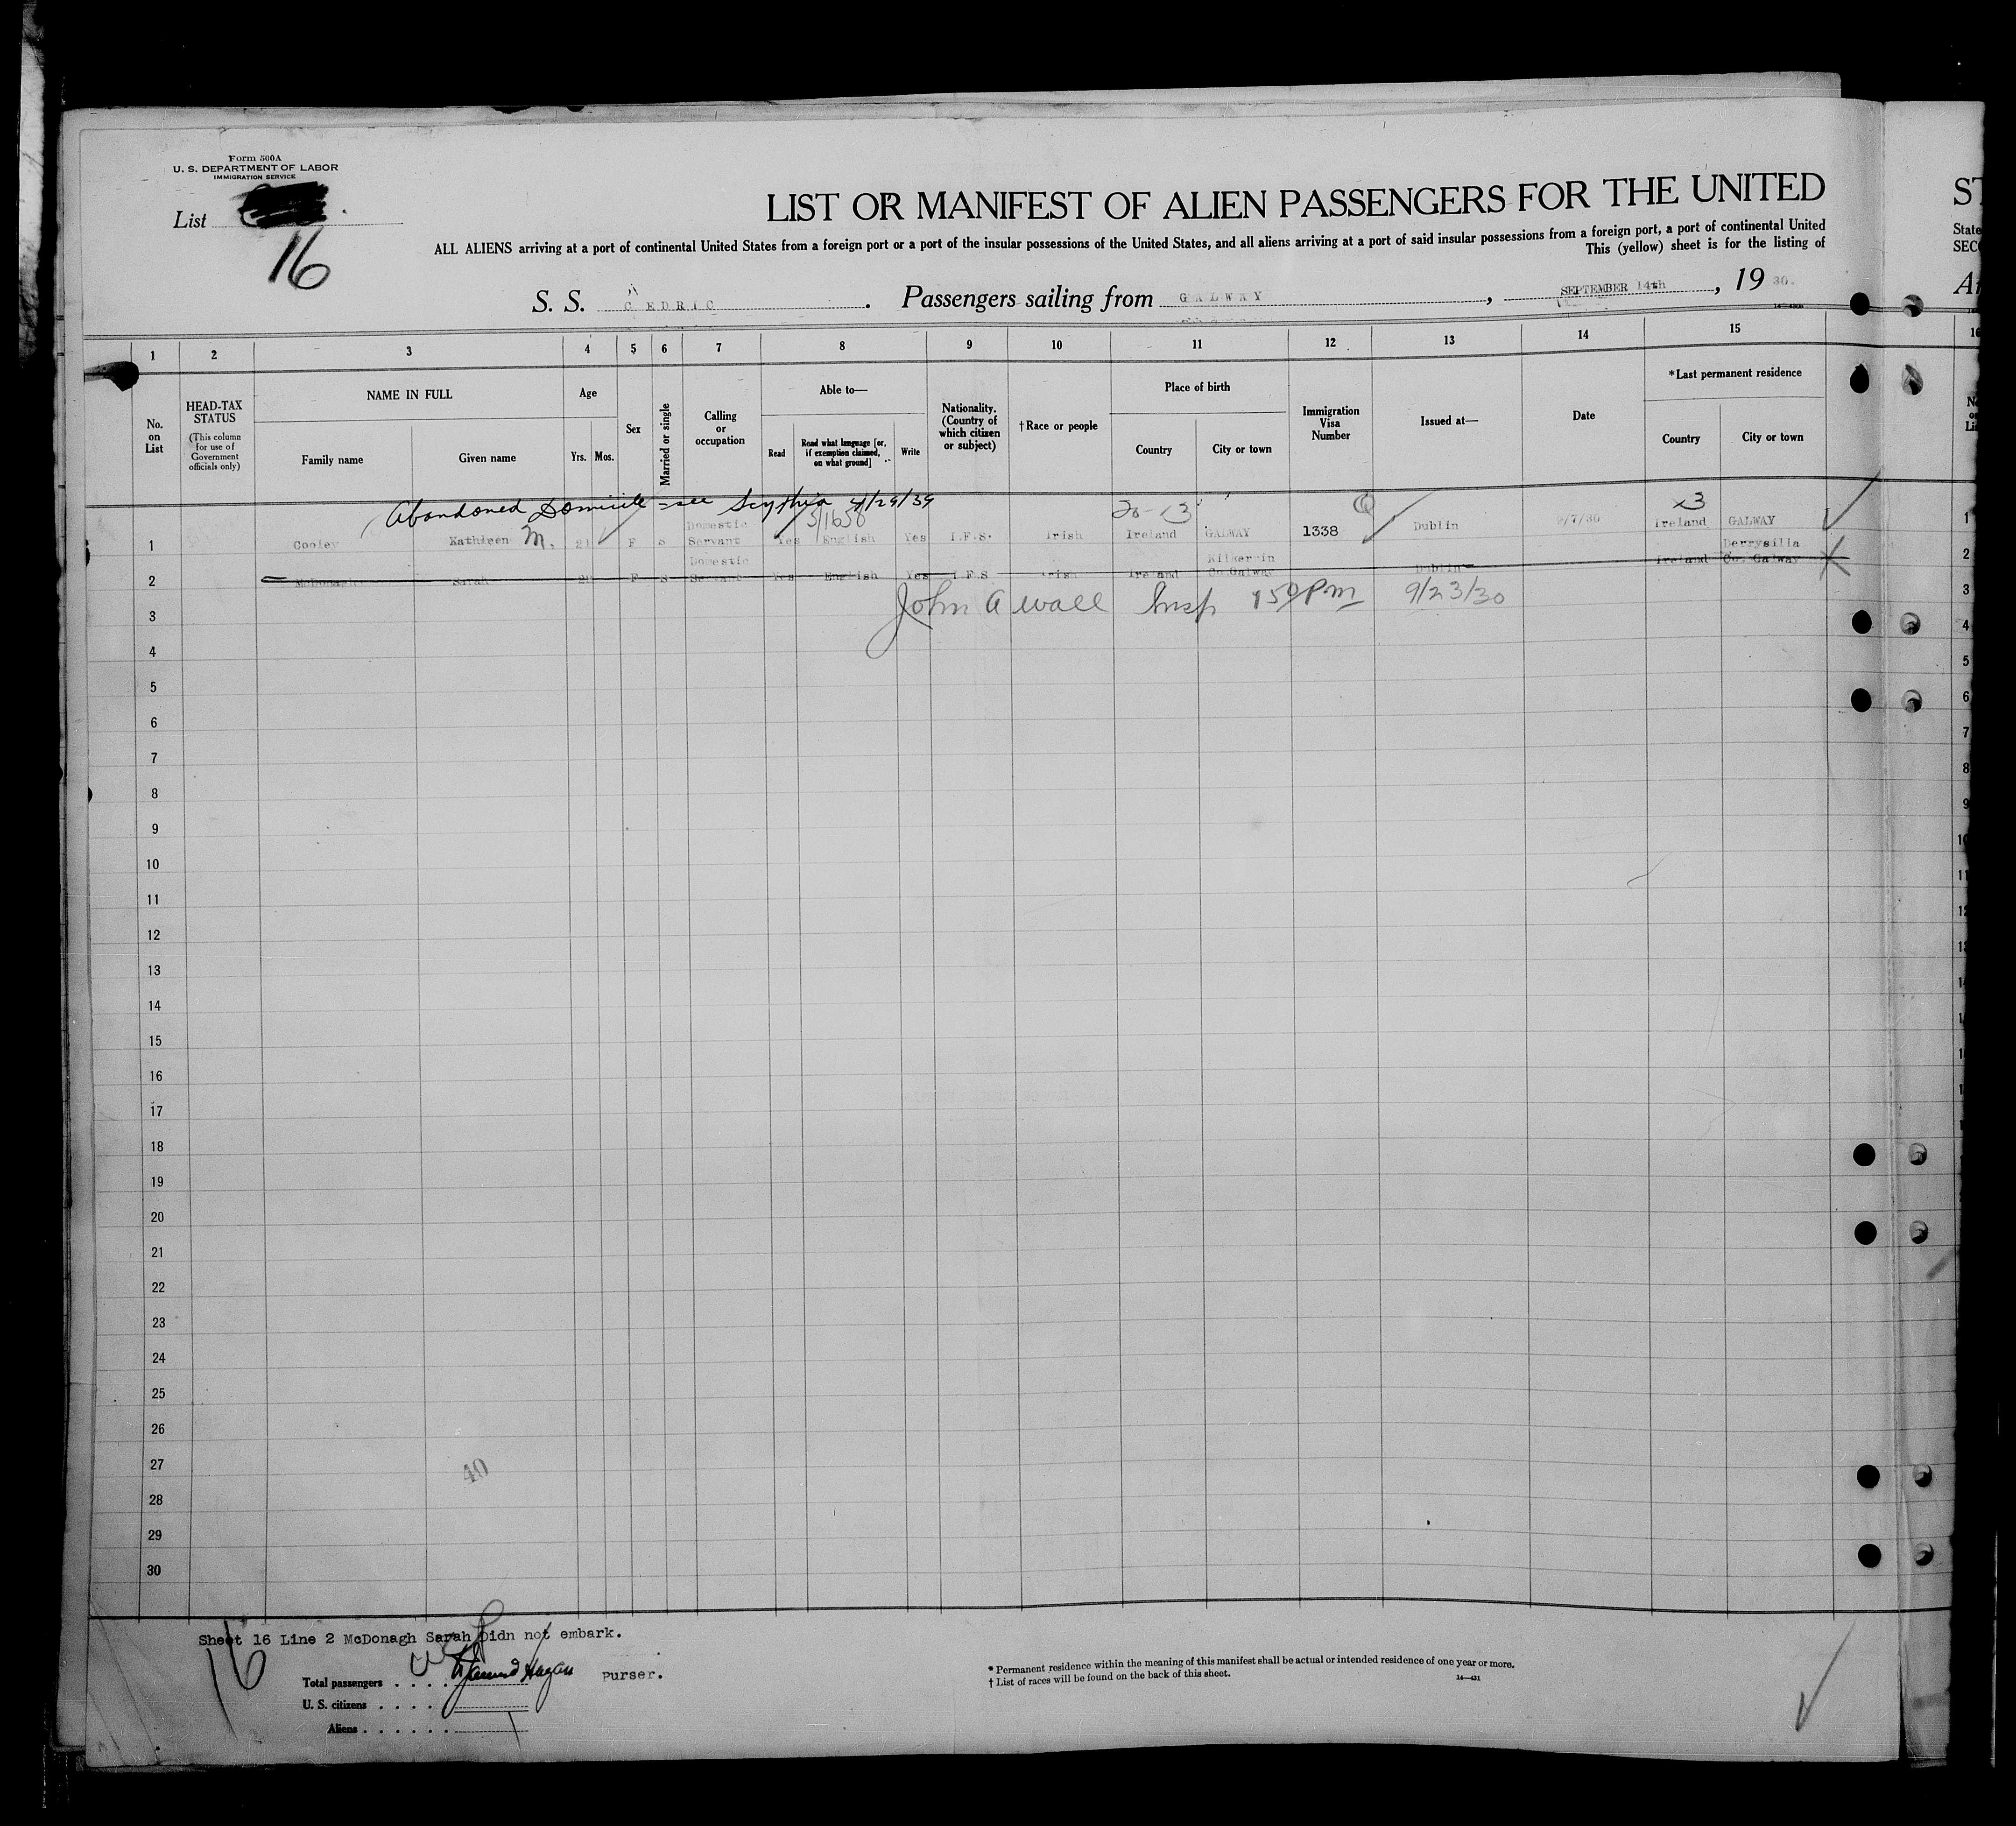 Form 500A
U. S. DEPARTMENT OF LABOR
IMMIGRATION SERVICE
List
16
LIST OR MANIFEST OF ALIEN PASSENGERS FOR THE UNITED
ST
ALL ALIENS arriving at a port of continental United States from a foreign port or a port of the insular possessions of the United States, and all aliens arriving at a port of said insular possessions from a foreign port, a port of continental United
State
This (yellow) sheet is for the listing of
SECO
S. S. CEDRIC . Passengers sailing from GALWAY , SEPTEMBER 14th , 19 30.
1 2 3 4 5 6 7 8 9 10 11 12 13 14 15
16
No. on List
HEAD-TAX STATUS
(This column for use of Government officials only)
NAME IN FULL
Family name
Given name
Age
Yrs. Mos.
Sex
Married or single
Calling or occupation
Able to—
Read
Read what language [or, if exemption claimed, on what ground]
Write
Nationality. (Country of which citizen or subject)
† Race or people
Place of birth
Country
City or town
Immigration Visa Number
Issued at—
Date
* Last permanent residence
Country
City or town
Abandoned Domicile = see Scythia 4/29/39
1 Cooley Kathleen M. 21 F S Domestic Servant Yes English Yes I.F.S. Irish Ireland GALWAY 1338 Dublin 9/7/30 Ireland GALWAY
2 McDonagh Sarah F S Domestic Servant Yes English Yes I.F.S Irish Ireland Co. Galway Dublin Ireland Co. Galway
John A Wall Insp 150 PM 9/23/30
3
4
5
6
7
8
9
10
11
12
13
14
15
16
17
18
19
20
21
22
23
24
25
26
27
28
29
30
40
Sheet 16 Line 2 McDonagh Sarah Didn not embark.
16
Purser.
Total passengers
U. S. citizens
Aliens
* Permanent residence within the meaning of this manifest shall be actual or intended residence of one year or more.
† List of races will be found on the back of this sheet.